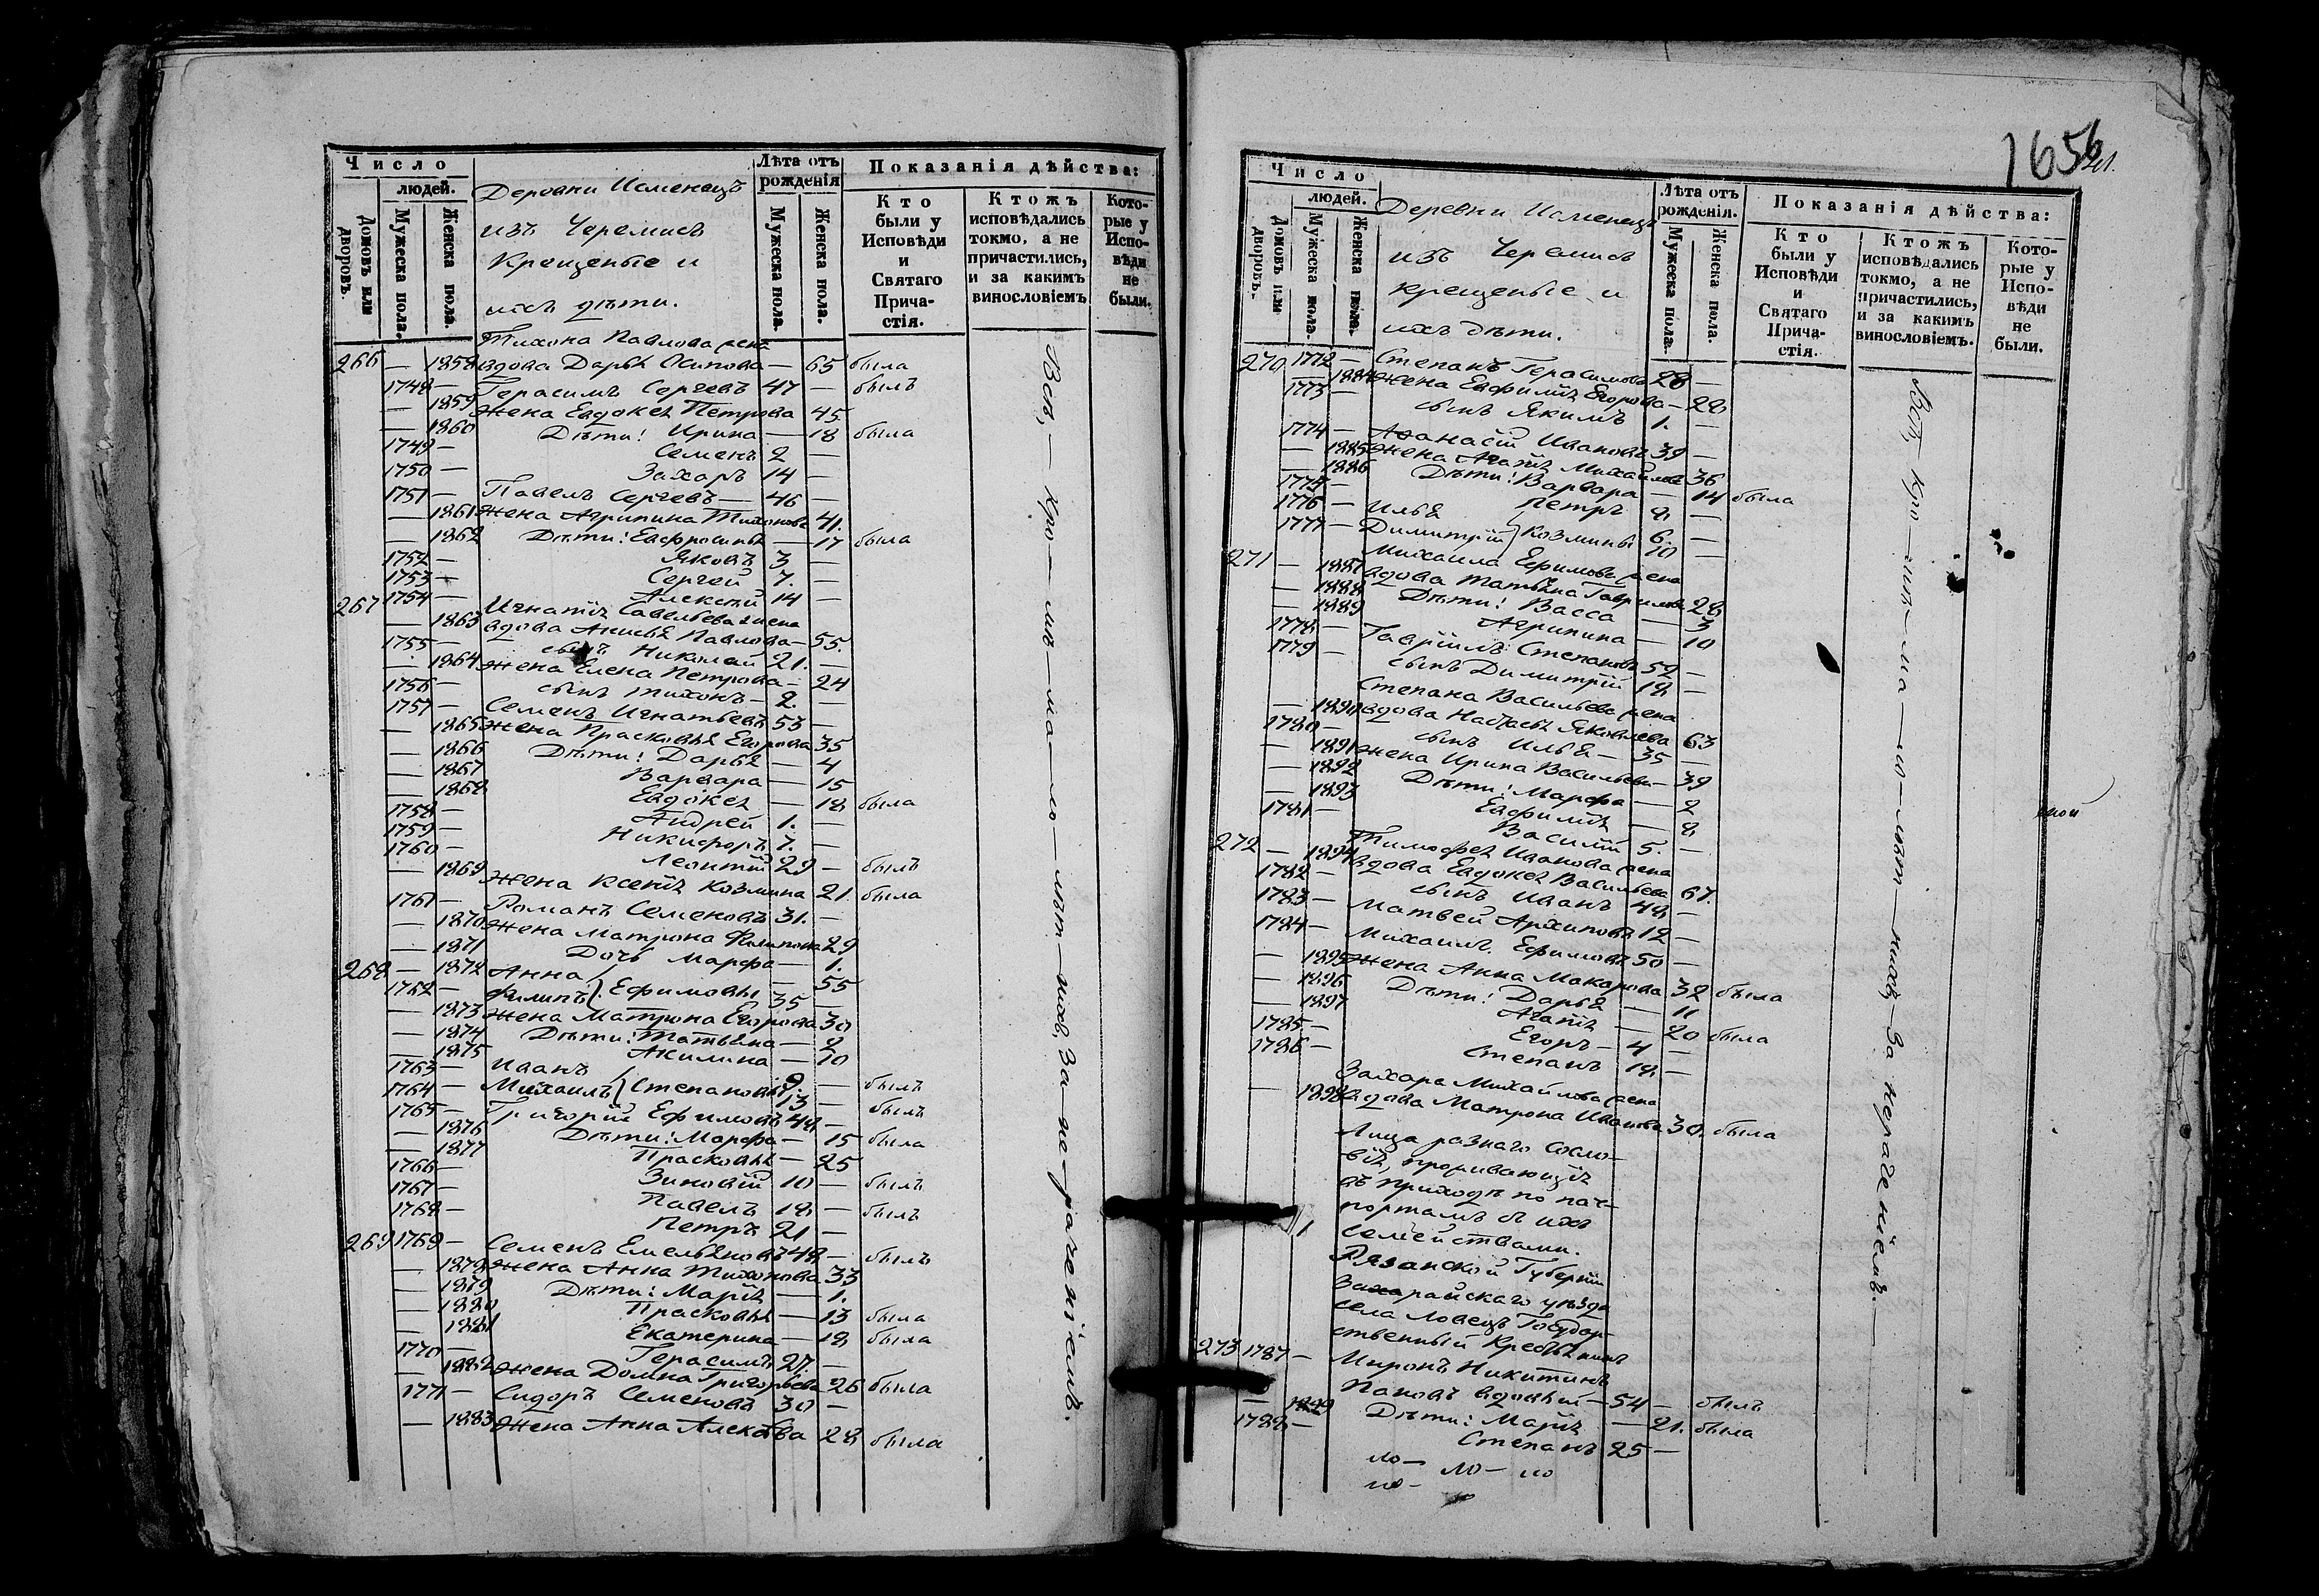 Число
людей.
Домовъ или дворовъ.
Мужеска пола.
Женска пола.
Деревни Исменецъ
изъ Черемисъ
Крещеные и
ихъ дѣти.
Лѣта отъ рожденія
Мужеска пола.
Женска пола.
Показанія дѣйства:
Кто были у Исповѣди и Святаго Причастія.
Ктожъ исповѣдались токмо, а не причастились, и за какимъ винословіемъ
Которые у Исповѣди не были.
Тихона Павлова жена
266 — 1858 вдова Дарья Осипова — 65 была
1748 — Герасимъ Сергеевъ 47 — былъ
— 1859 Жена Евдокея Петрова 45
— 1860 Дѣти: Ирина — 18 была
1749 — Семенъ 2 —
1750 — Захаръ 14 —
1751 — Павелъ Сергеевъ — 46 —
— 1861 Жена Агрипина Тихонова 41.
— 1862 Дѣти: Евфросинья — 17 была
1752 — Яковъ 3 —
1753 — Сергей 7. —
1754 — Алексѣй 14 —
267 Игнатія Савельева жена
— 1863 вдова Анисья Павлова — 55.
1755 — сынъ Николай 21. —
— 1864 Жена Елена Петрова — 24
1756 — сынъ Тихонъ — 2. —
1757 — Семенъ Игнатьевъ 53 —
— 1865 Жена Прасковья Егорова 35
— 1866 Дѣти: Дарья — 4
— 1867 Варвара — 15
— 1868 Евдокея — 18 была
1758 — Андрей 1. —
1759 — Никифоръ 7. —
1760 — Леонтій 29 — былъ
— 1869 Жена Ксенія Козмина 21. была
1761 — Романъ Семеновъ 31. —
— 1870 Жена Матрона Филипова 29
— 1871 Дочь Марфа — 1.
268 — 1872 Анна } Ефимовы — 55
1762 — Филипъ 35 —
— 1873 Жена Матрона Егорова 30
— 1874 Дѣти: Татьяна — 8
— 1875 Акилина — 10
1763 — Иванъ } Степановы 9. — былъ
1764 — Михаилъ 13 — былъ
1765 — Григорій Ефимовъ 48 —
— 1876 Дѣти: Марфа — 15 была
— 1877 Прасковья — 25
1766 — Зиновій 10 — былъ
1767 — Павелъ 18 — былъ
1768 — Петръ 21 —
269 1769 — Семенъ Емельяновъ 48 — былъ
— 1878 Жена Анна Тихонова 33
— 1879 Дѣти: Марія — 1.
— 1880 Прасковья — 13 была
— 1881 Екатерина — 18 была
1770 — Герасимъ 27. —
— 1882 Жена Домна Григорьева 26 была
1771 — Сидоръ Семеновъ 30 —
— 1883 Жена Анна Алексѣева 28 была
Всѣ, — кро — мѣ — ма — ло — лѣт — нихъ, За — не — раченіемъ.
1656
Число
людей.
Домовъ или дворовъ.
Мужеска пола.
Женска пола.
Деревни Исменецъ
изъ Черемисъ
крещеные и
ихъ дѣти.
Лѣта отъ рожденія.
Мужеска пола.
Женска пола.
Показанія дѣйства:
Кто были у Исповѣди и Святаго Причастія.
Ктожъ исповѣдались токмо, а не причастились, и за какимъ винословіемъ.
Которые у Исповѣди не были.
270 1772 — Степанъ Герасимовъ 28 —
— 1884 Жена Евфимія Егорова — 28
1773 — сынъ Якимъ 1. —
1774 — Афанасій Ивановъ 39 —
— 1885 Жена Агапія Михайлова 36
— 1886 Дѣти: Варвара — 14 была
1775 — Петръ 8 —
1776 — Илья } Козмины 6. —
1777 — Димитрій 10 —
271 Михаила Ефимова жена
— 1887 вдова Татьяна Гаврилова 28
— 1888 Дѣти: Васса — 3
— 1889 Агрипина — 10
1778 — Гавріилъ Степановъ 52 —
1779 — сынъ Димитрій 18 —
Степана Васильева жена
— 1890 вдова Настасья Яковлева 63
1780 — сынъ Илья — 35 —
— 1891 Жена Ирина Васильева — 39
— 1892 Дѣти: Марфа — 2
— 1893 Евфимія — 8
1781 — Василій 5. —
272 Тимофея Иванова жена
— 1894 вдова Евдокея Васильева 67.
1782 — сынъ Иванъ 48 —
1783 — Матвей Архиповъ 12 —
1784 — Михаилъ Ефимовъ 50 —
— 1895 Жена Анна Макарова 32 была
— 1896 Дѣти: Дарья — 11
— 1897 Агапія — 20 была
1785 — Егоръ — 4 —
1786 — Степанъ 18 —
Захара Михайлова жена
— 1898 вдова Матрона Иванова 30. была
Лица разнаго сосло-
вія, проживающія
въ приходѣ по пас-
портамъ съ ихъ
семействами.
Рязанской Губерніи
Зарайскаго уѣзда
села Ловецъ Государ-
ственный Крестьянинъ
273 1787 — Миронъ Никитинъ
Пановъ вдовый — 54 — былъ
— 1899 Дѣти: Марія — 21. была
1788 — Степанъ 25 —
Всѣ, — кро — мѣ — ма — ло — лѣт — нихъ, — За нераченіемъ. —